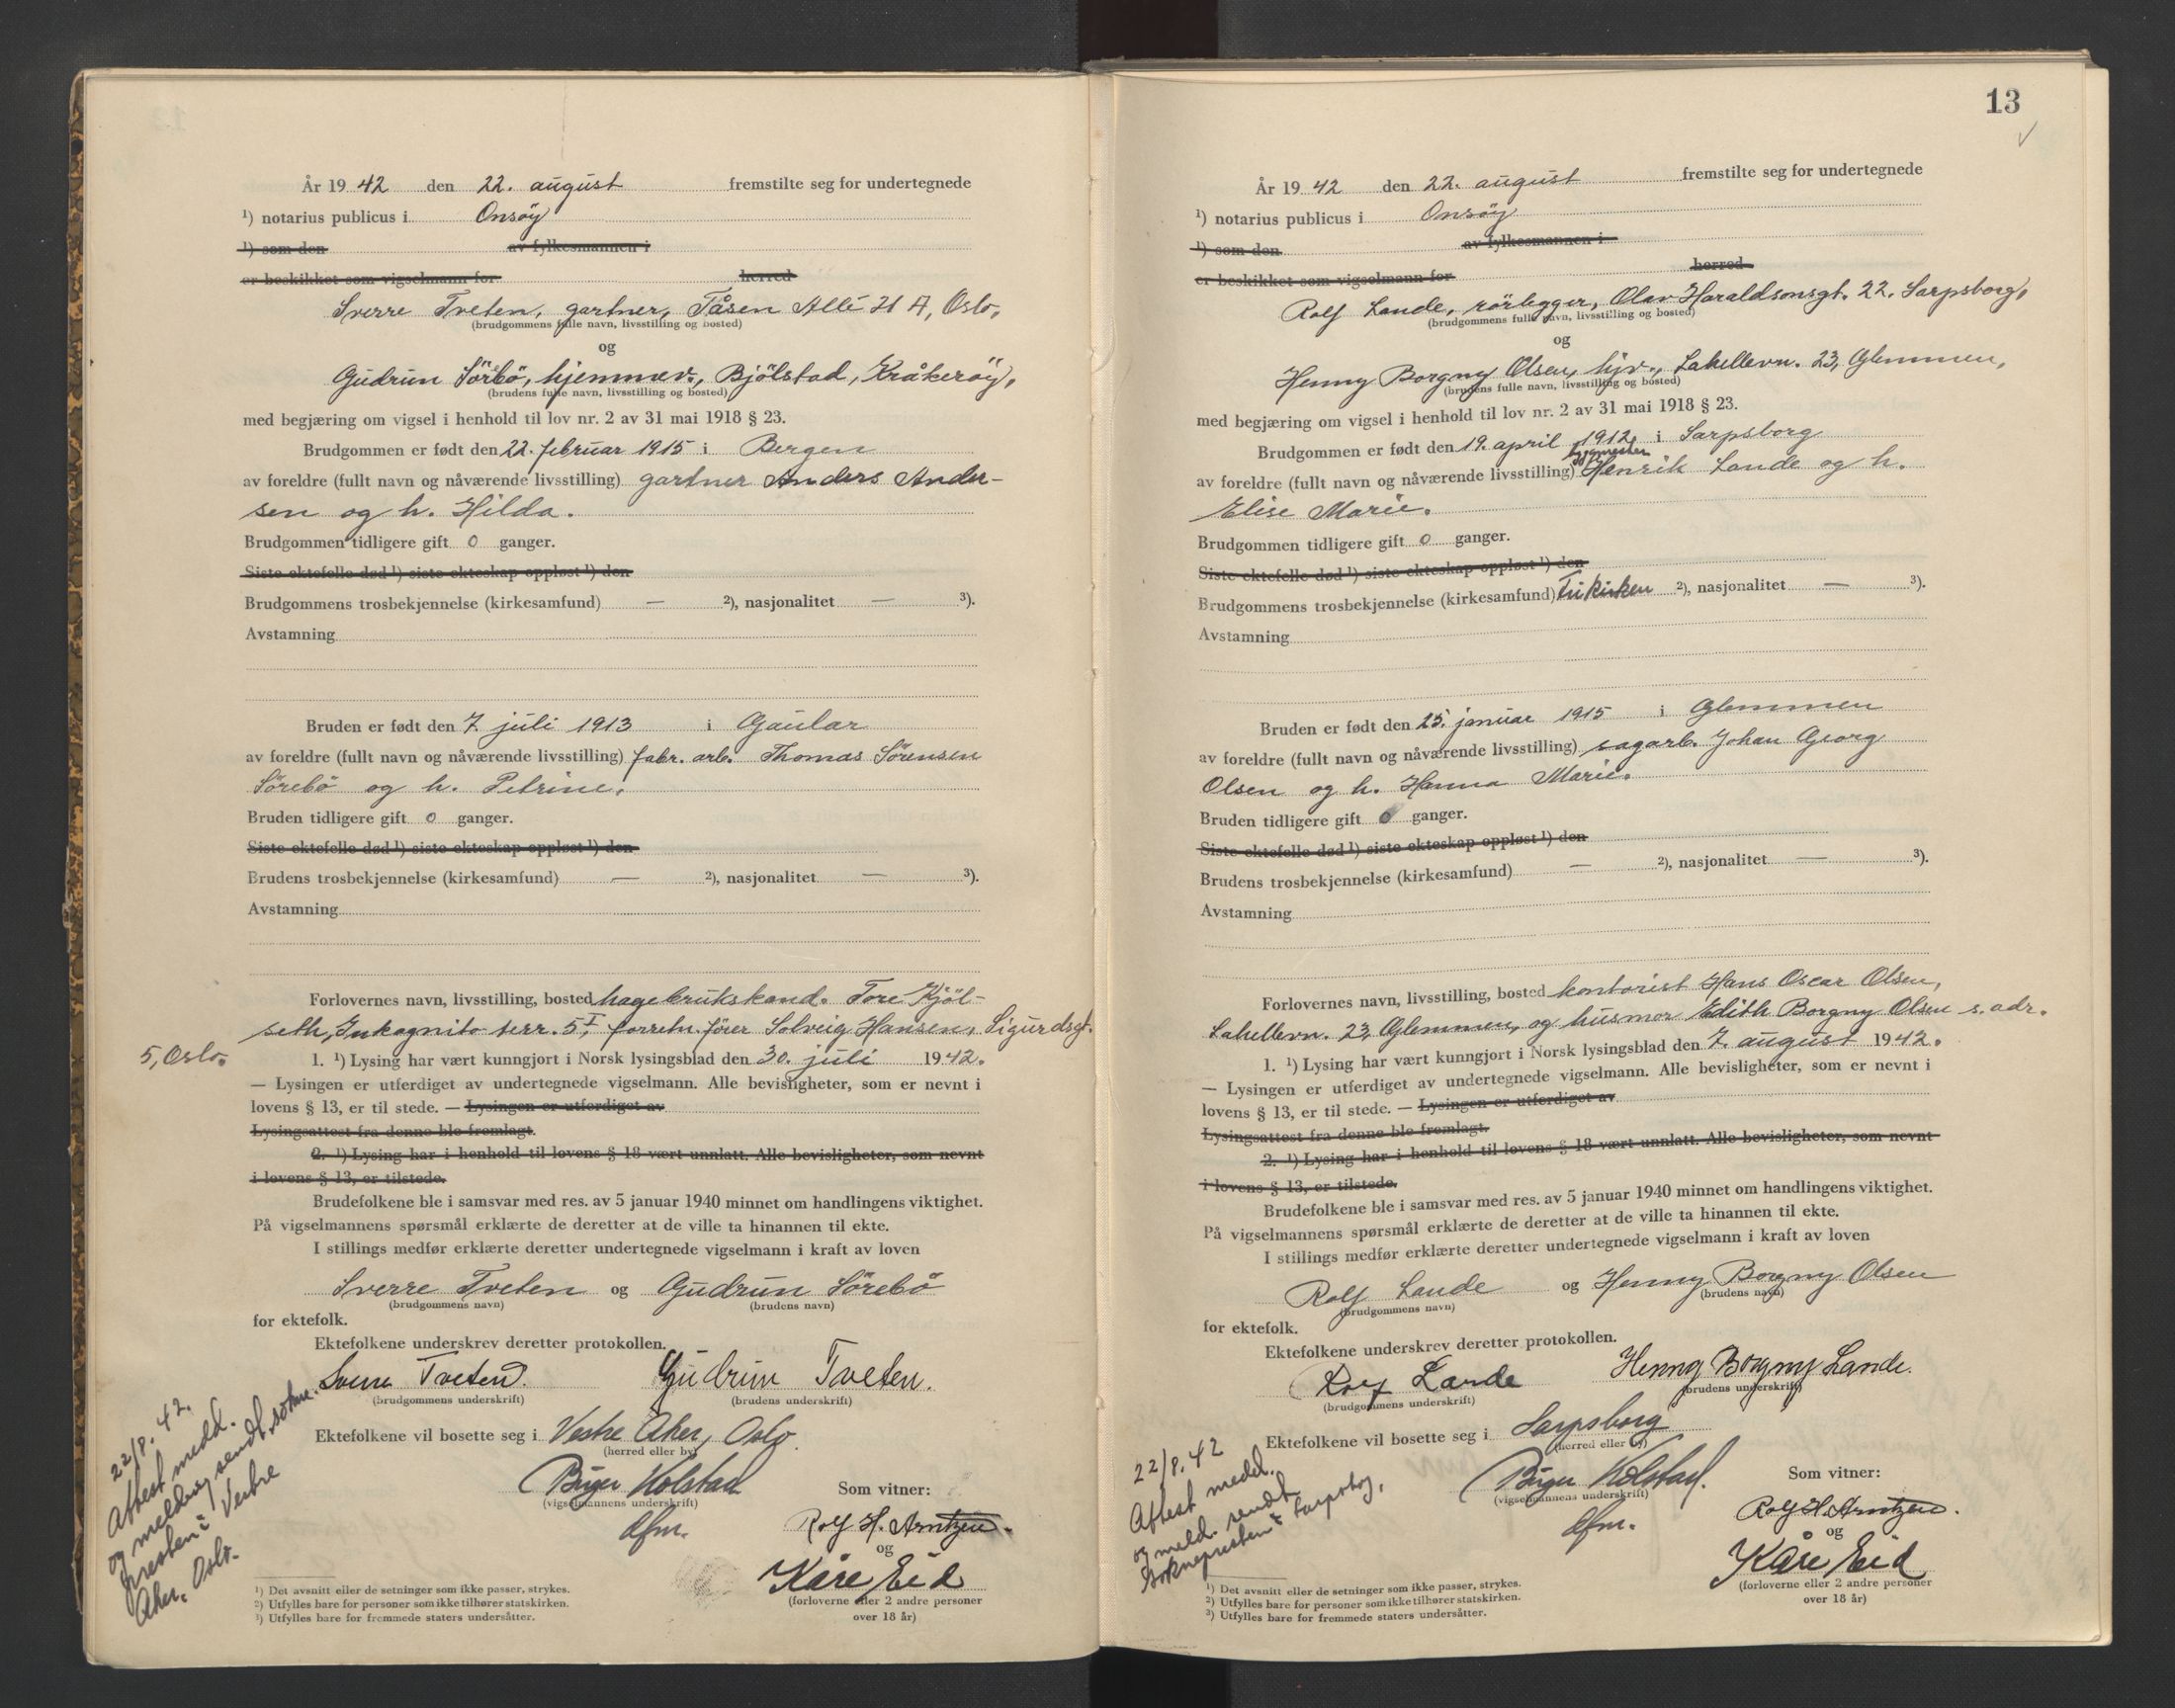 År 19 42 den 22. august fremstilte seg for undertegnede
¹) notarius publicus i Onsöy
¹) som den av fylkesmannen i
er beskikket som vigselmann for herred
Sverre Tveten, gartner, Tåsen Allé 21 A, Oslo.
(brudgommens fulle navn, livsstilling og bosted)
og
Gudrun Sörbö, hjemmev., Bjölstad, Kråkeröy,
(brudens fulle navn, livsstilling og bosted)
med begjæring om vigsel i henhold til lov nr. 2 av 31 mai 1918 § 23.
Brudgommen er født den 22. februar 1915 i Bergen
av foreldre (fullt navn og nåværende livsstilling) gartner Anders Ander-
sen og h. Hilda.
Brudgommen tidligere gift 0 ganger.
Siste ektefelle død ¹) siste ekteskap oppløst ¹) den
Brudgommens trosbekjennelse (kirkesamfund) — ²), nasjonalitet — ³).
Avstamning
Bruden er født den 7. juli 1913 i Gaular
av foreldre (fullt navn og nåværende livsstilling) fabr. arb. Thomas Sörensen
Sörebö og h. Petrine.
Bruden tidligere gift 0 ganger.
Siste ektefelle død ¹) siste ekteskap oppløst ¹) den
Brudens trosbekjennelse (kirkesamfund) — ²), nasjonalitet — ³).
Avstamning
Forlovernes navn, livsstilling, bosted hagebrukskand. Tore Kjöl-
seth, Inkognito terr. 5 I, forretn. förer Solveig Hansen, Sigurdsgt.
5, Oslo.
1. ¹) Lysing har vært kunngjort i Norsk lysingsblad den 30. juli 1942.
— Lysingen er utferdiget av undertegnede vigselmann. Alle bevisligheter, som er nevnt i
lovens § 13, er til stede. — Lysingen er utferdiget av
Lysingsattest fra denne ble fremlagt.
2. ¹) Lysing har i henhold til lovens § 18 vært unnlatt. Alle bevisligheter, som nevnt
i lovens § 13, er tilstede.
Brudefolkene ble i samsvar med res. av 5 januar 1940 minnet om handlingens viktighet.
På vigselmannens spørsmål erklærte de deretter at de ville ta hinannen til ekte.
I stillings medfør erklærte deretter undertegnede vigselmann i kraft av loven
Sverre Tveten og Gudrun Sörebö
(brudgommens navn) (brudens navn)
for ektefolk.
Ektefolkene underskrev deretter protokollen.
Sverre Tveten. Gudrun Tveten.
(brudgommens underskrift) (brudens underskrift)
Ektefolkene vil bosette seg i Vestre Aker, Oslo.
(herred eller by)
Birger Kolstad
(vigselmannens underskrift)
dfm.
Som vitner:
Rolf H. Arntzen.
og
Kåre Eid
(forloverne eller 2 andre personer
over 18 år)
22/8. 42.
Attest medd.
og melding sendt sokne-
presten i Vestre
Aker, Oslo.
¹) Det avsnitt eller de setninger som ikke passer, strykes.
²) Utfylles bare for personer som ikke tilhører statskirken.
³) Utfylles bare for fremmede staters undersåtter.
13
År 19 42 den 22. august fremstilte seg for undertegnede
¹) notarius publicus i Onsöy
¹) som den av fylkesmannen i
er beskikket som vigselmann for herred
Rolf Lande, rörlegger, Olav Haraldsonsgt. 22, Sarpsborg,
(brudgommens fulle navn, livsstilling og bosted)
og
Henny Borgny Olsen, hjv., Lahellevn. 23, Glemmen,
(brudens fulle navn, livsstilling og bosted)
med begjæring om vigsel i henhold til lov nr. 2 av 31 mai 1918 § 23.
Brudgommen er født den 19. april 1912 i Sarpsborg
av foreldre (fullt navn og nåværende livsstilling) byggmester Henrik Lande og h.
Elise Marie.
Brudgommen tidligere gift 0 ganger.
Siste ektefelle død ¹) siste ekteskap oppløst ¹) den
Brudgommens trosbekjennelse (kirkesamfund) Frikirken ²), nasjonalitet — ³).
Avstamning
Bruden er født den 25. januar 1915 i Glemmen
av foreldre (fullt navn og nåværende livsstilling) sagarb. Johan Georg
Olsen og h. Hanna Marie.
Bruden tidligere gift 0 ganger.
Siste ektefelle død ¹) siste ekteskap oppløst ¹) den
Brudens trosbekjennelse (kirkesamfund) — ²), nasjonalitet — ³).
Avstamning
Forlovernes navn, livsstilling, bosted kontorist Hans Oscar Olsen,
Lahellevn. 23, Glemmen, og husmor Edith Borgny Olsen s. adr.
1. ¹) Lysing har vært kunngjort i Norsk lysingsblad den 7. august 1942.
— Lysingen er utferdiget av undertegnede vigselmann. Alle bevisligheter, som er nevnt i
lovens § 13, er til stede. — Lysingen er utferdiget av
Lysingsattest fra denne ble fremlagt.
2. ¹) Lysing har i henhold til lovens § 18 vært unnlatt. Alle bevisligheter, som nevnt
i lovens § 13, er tilstede.
Brudefolkene ble i samsvar med res. av 5 januar 1940 minnet om handlingens viktighet.
På vigselmannens spørsmål erklærte de deretter at de ville ta hinannen til ekte.
I stillings medfør erklærte deretter undertegnede vigselmann i kraft av loven
Rolf Lande og Henny Borgny Olsen
(brudgommens navn) (brudens navn)
for ektefolk.
Ektefolkene underskrev deretter protokollen.
Rolf Lande Henny Borgny Lande.
(brudgommens underskrift) (brudens underskrift)
Ektefolkene vil bosette seg i Sarpsborg
(herred eller by)
Birger Kolstad.
(vigselmannens underskrift)
dfm.
Som vitner:
Rolf H. Arntzen.
og
Kåre Eid
(forloverne eller 2 andre personer
over 18 år)
22/8. 42
Attest medd.
og meld. sendt
sokneprest​en i Sarpsborg.
¹) Det avsnitt eller de setninger som ikke passer, strykes.
²) Utfylles bare for personer som ikke tilhører statskirken.
³) Utfylles bare for fremmede staters undersåtter.